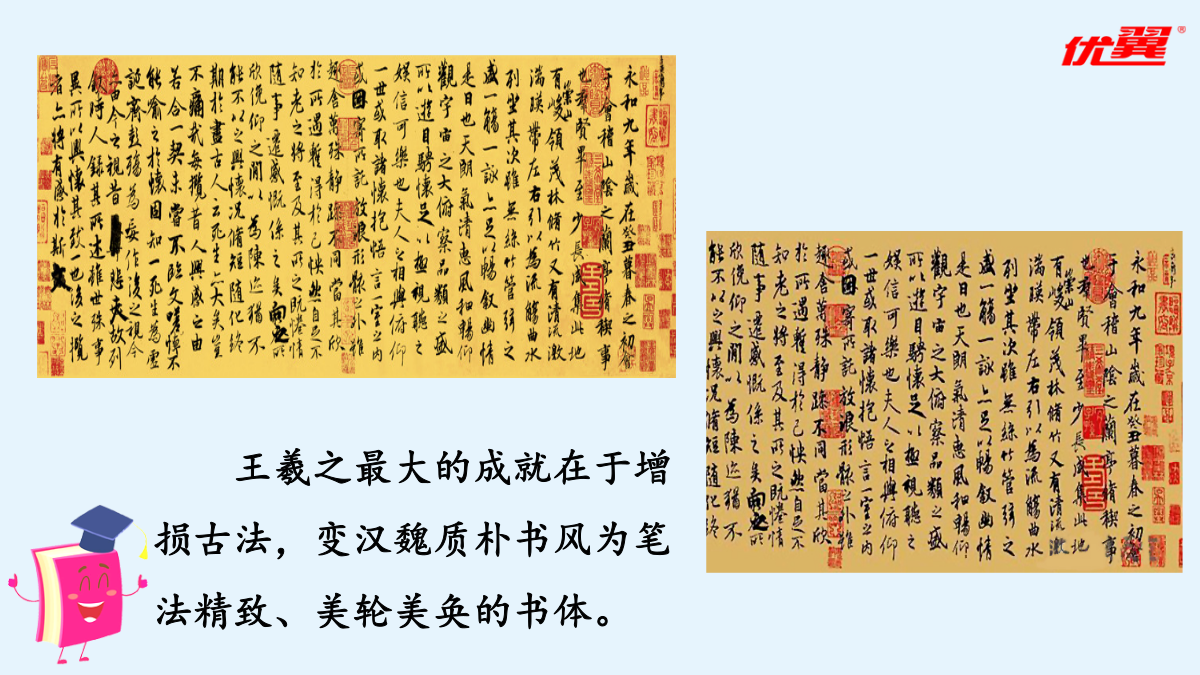 优翼
永和九年歲在癸丑暮春之初會
于會稽山陰之蘭亭脩稧事
也羣賢畢至少長咸集此地
有崇山峻領茂林脩竹又有清流激
湍暎帶左右引以為流觴曲水
列坐其次雖無絲竹管弦之
盛一觴一詠亦足以暢敘幽情
是日也天朗氣清惠風和暢仰
觀宇宙之大俯察品類之盛
所以遊目騁懷足以極視聽之
娛信可樂也夫人之相與俯仰
一世或取諸懷抱悟言一室之內
或因寄所託放浪形骸之外雖
趣舍萬殊靜躁不同當其欣
於所遇蹔得於己怏然自足不
知老之將至及其所之既惓情
隨事遷感慨係之矣向之所
欣俛仰之閒以為陳迹猶不
能不以之興懷況脩短隨化終
期於盡古人云死生亦大矣豈
不痛哉每攬昔人興感之由
若合一契未嘗不臨文嗟悼不
能喻之於懷固知一死生為虛
誕齊彭殤為妄作後之視今
亦由今之視昔悲夫故列
敘時人錄其所述雖世殊事
異所以興懷其致一也後之攬
者亦將有感於斯文
永和九年歲在癸丑暮春之初會
于會稽山陰之蘭亭脩稧事
也羣賢畢至少長咸集此地
有崇山峻領茂林脩竹又有清流激
湍暎帶左右引以為流觴曲水
列坐其次雖無絲竹管弦之
盛一觴一詠亦足以暢敘幽情
是日也天朗氣清惠風和暢仰
觀宇宙之大俯察品類之盛
所以遊目騁懷足以極視聽之
娛信可樂也夫人之相與俯仰
一世或取諸懷抱悟言一室之內
或因寄所託放浪形骸之外雖
趣舍萬殊靜躁不同當其欣
於所遇蹔得於己怏然自足不
知老之將至及其所之既惓情
隨事遷感慨係之矣向之所
欣俛仰之閒以為陳迹猶不
能不以之興懷況脩短隨化終
王羲之最大的成就在于增
损古法，变汉魏质朴书风为笔
法精致、美轮美奂的书体。